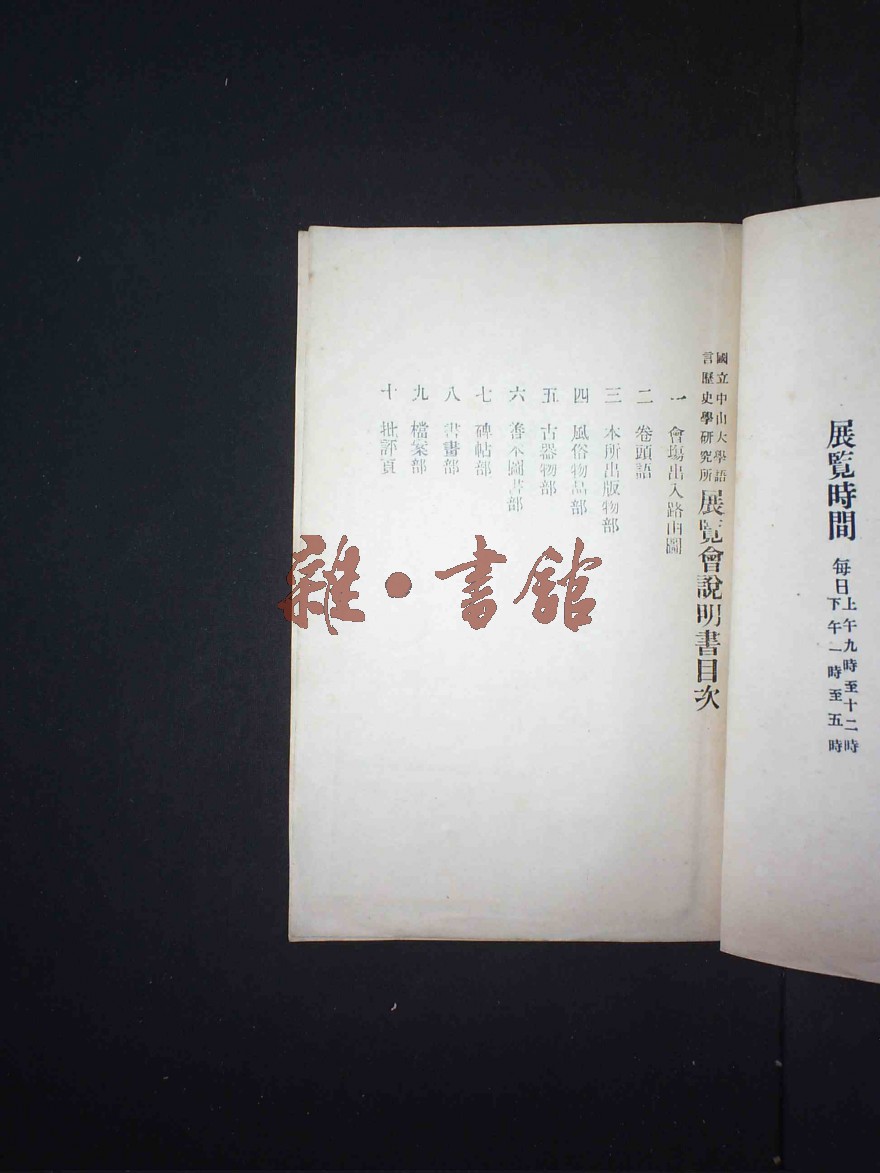 展覽時間 每日上午九時至十二時
下午一時至五時
國立中山大學語
言歷史學研究所
展覽會說明書目次
一 會場出入路由圖
二 卷頭語
三 本所出版物部
四 風俗物品部
五 古器物部
六 善本圖書部
七 碑帖部
八 書畫部
九 檔案部
十 批評頁
雜·書館